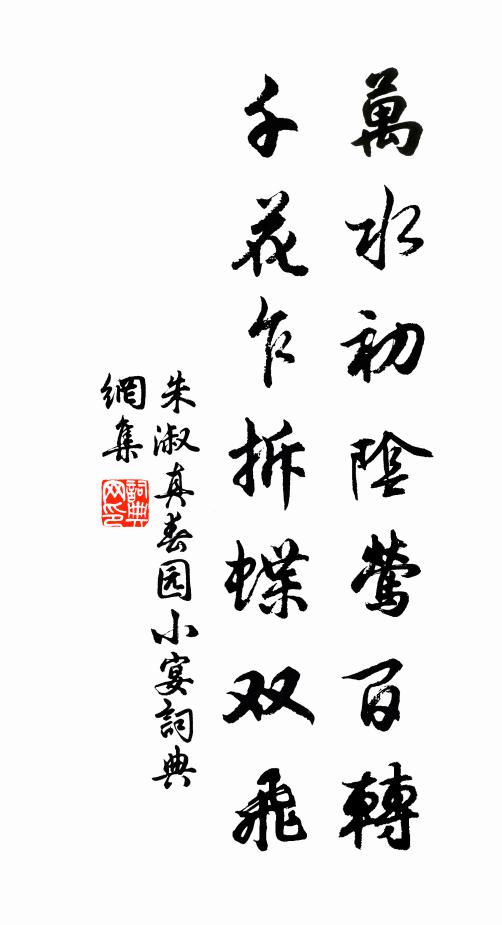 萬水初陰鶯百轉
千花乍拆蝶双飛
朱淑真春园小宴詞典
網集
詞典
网印